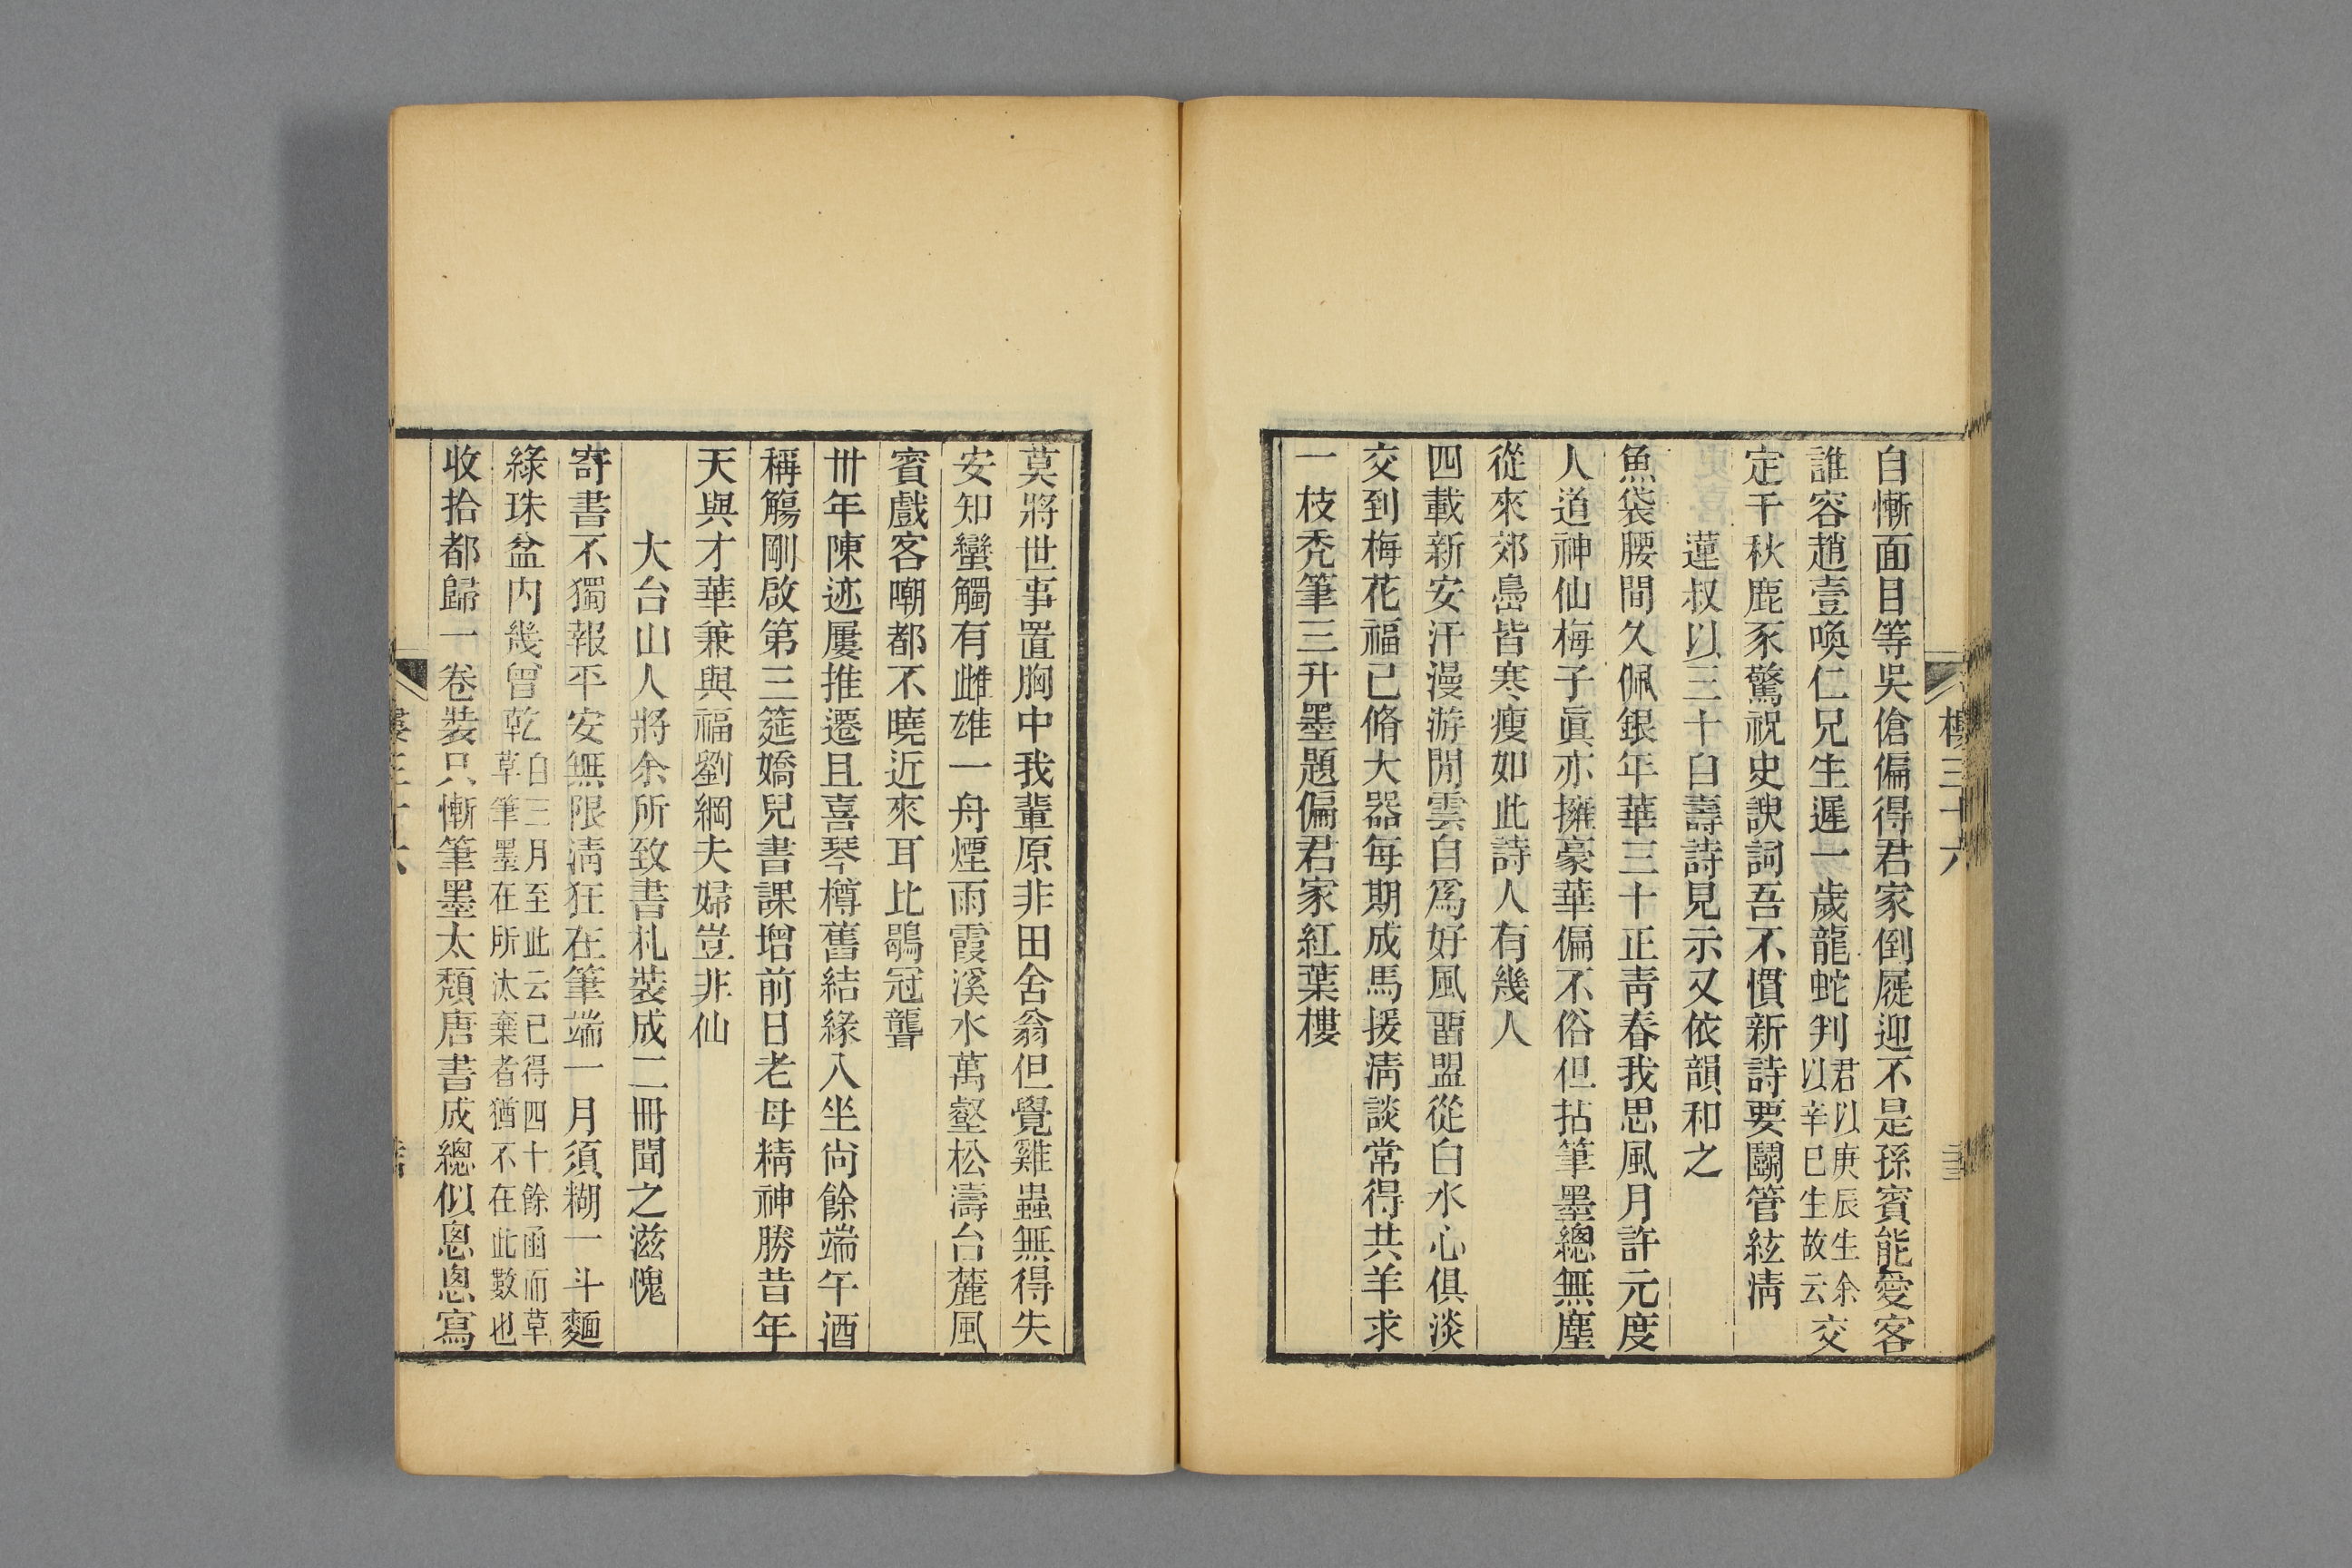 自慚面目等吳傖偏得君家倒屣迎不是孫賓能愛客
誰容趙壹喚仁兄生遲一歲龍蛇判君以庚辰生余以辛巳生故云交
定千秋鹿豕驚祝史諛詞吾不慣新詩要鬭管絃淸
蓮叔以三十自壽詩見示又依韻和之
魚袋腰間久佩銀年華三十正靑春我思風月許元度
人道神仙梅子眞亦擁豪華偏不俗但拈筆墨總無塵
從來郊島皆寒瘦如此詩人有幾人
四載新安汗漫游閒雲自爲好風畱盟從白水心俱淡
交到梅花福已脩大器每期成馬援淸談常得共羊求
一枝禿筆三升墨題偏君家紅葉樓
樓三十六
莫將世事置胸中我輩原非田舍翁但覺雞蟲無得失
安知蠻觸有雌雄一舟煙雨霞溪水萬壑松濤台麓風
賓戲客嘲都不曉近來耳比鶡冠聾
卅年陳迹屢推遷且喜琴樽舊結緣入坐尙餘端午酒
稱觴剛啟第三筵嬌兒書課增前日老母精神勝昔年
天與才華兼與福劉綱夫婦豈非仙
大台山人將余所致書札裝成二冊聞之滋愧
寄書不獨報平安無限淸狂在筆端一月須糊一斗麵
綠珠盆內幾曾乾自三月至此云已得四十餘函而草草筆墨在所汰棄者猶不在此數也
收拾都歸一卷裝只慚筆墨太頹唐書成總似悤悤寫